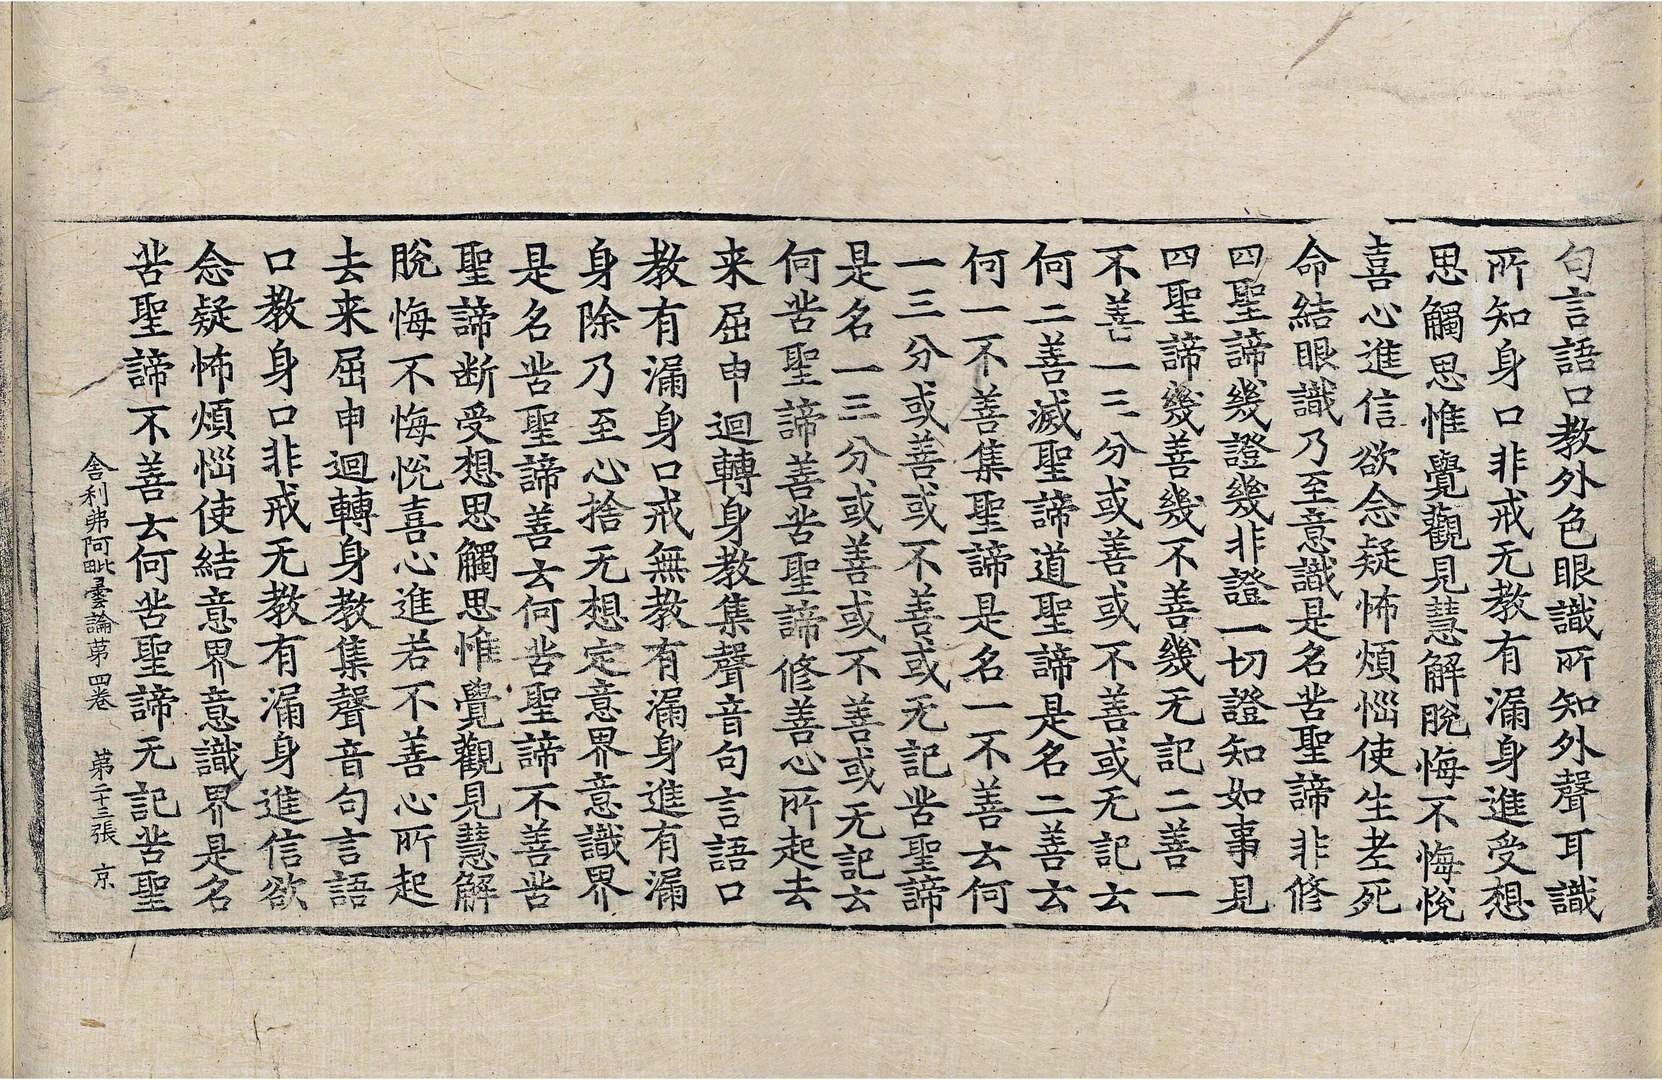 句言語口教外色眼識所知外聲耳識
所知身口非戒无教有漏身進受想
思觸思惟覺觀見慧解脫悔不悔悅
喜心進信欲念疑怖煩惱使生老死
命結眼識乃至意識是名苦聖諦非修
四聖諦幾證幾非證一切證知如事見
四聖諦幾善幾不善幾无記二善一
不善一三分或善或不善或无記云
何二善滅聖諦道聖諦是名二善云
何一不善集聖諦是名一不善云何
一三分或善或不善或无記苦聖諦
是名一三分或善或不善或无記云
何苦聖諦善苦聖諦修善心所起去
来屈申迴轉身教集聲音句言語口
教有漏身口戒無教有漏身進有漏
身除乃至心捨无想定意界意識界
是名苦聖諦善云何苦聖諦不善苦
聖諦断受想思觸思惟覺觀見慧解
脫悔不悔悅喜心進若不善心所起
去来屈申迴轉身教集聲音句言語
口教身口非戒无教有漏身進信欲
念疑怖煩惱使結意界意識界是名
苦聖諦不善云何苦聖諦无記苦聖
舍利弗阿毗曇論第四卷 第二十三張 京